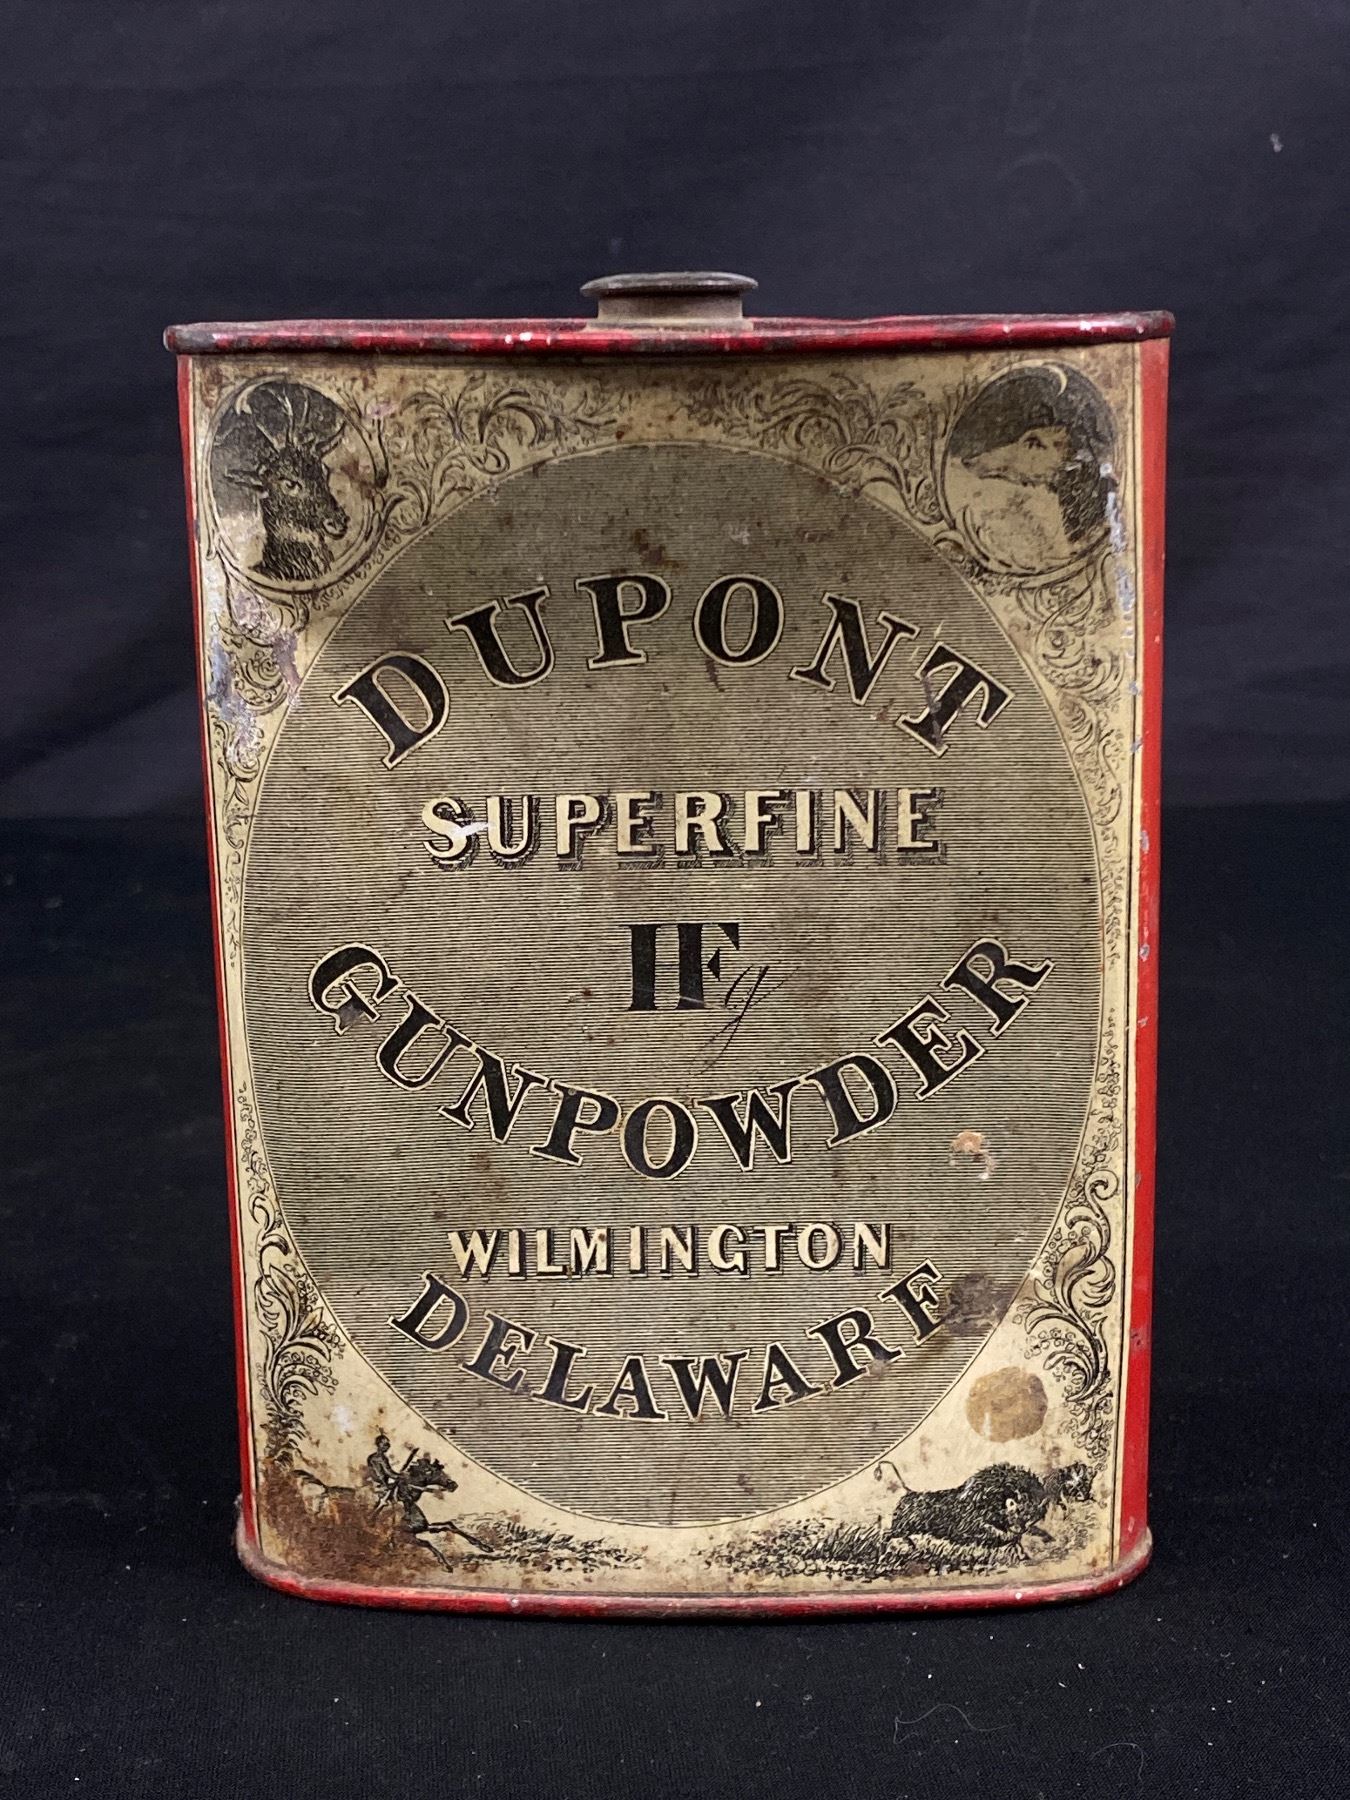 DUPONT
SUPERFINE
IIFg
GUNPOWDER
WILMINGTON
DELAWARE